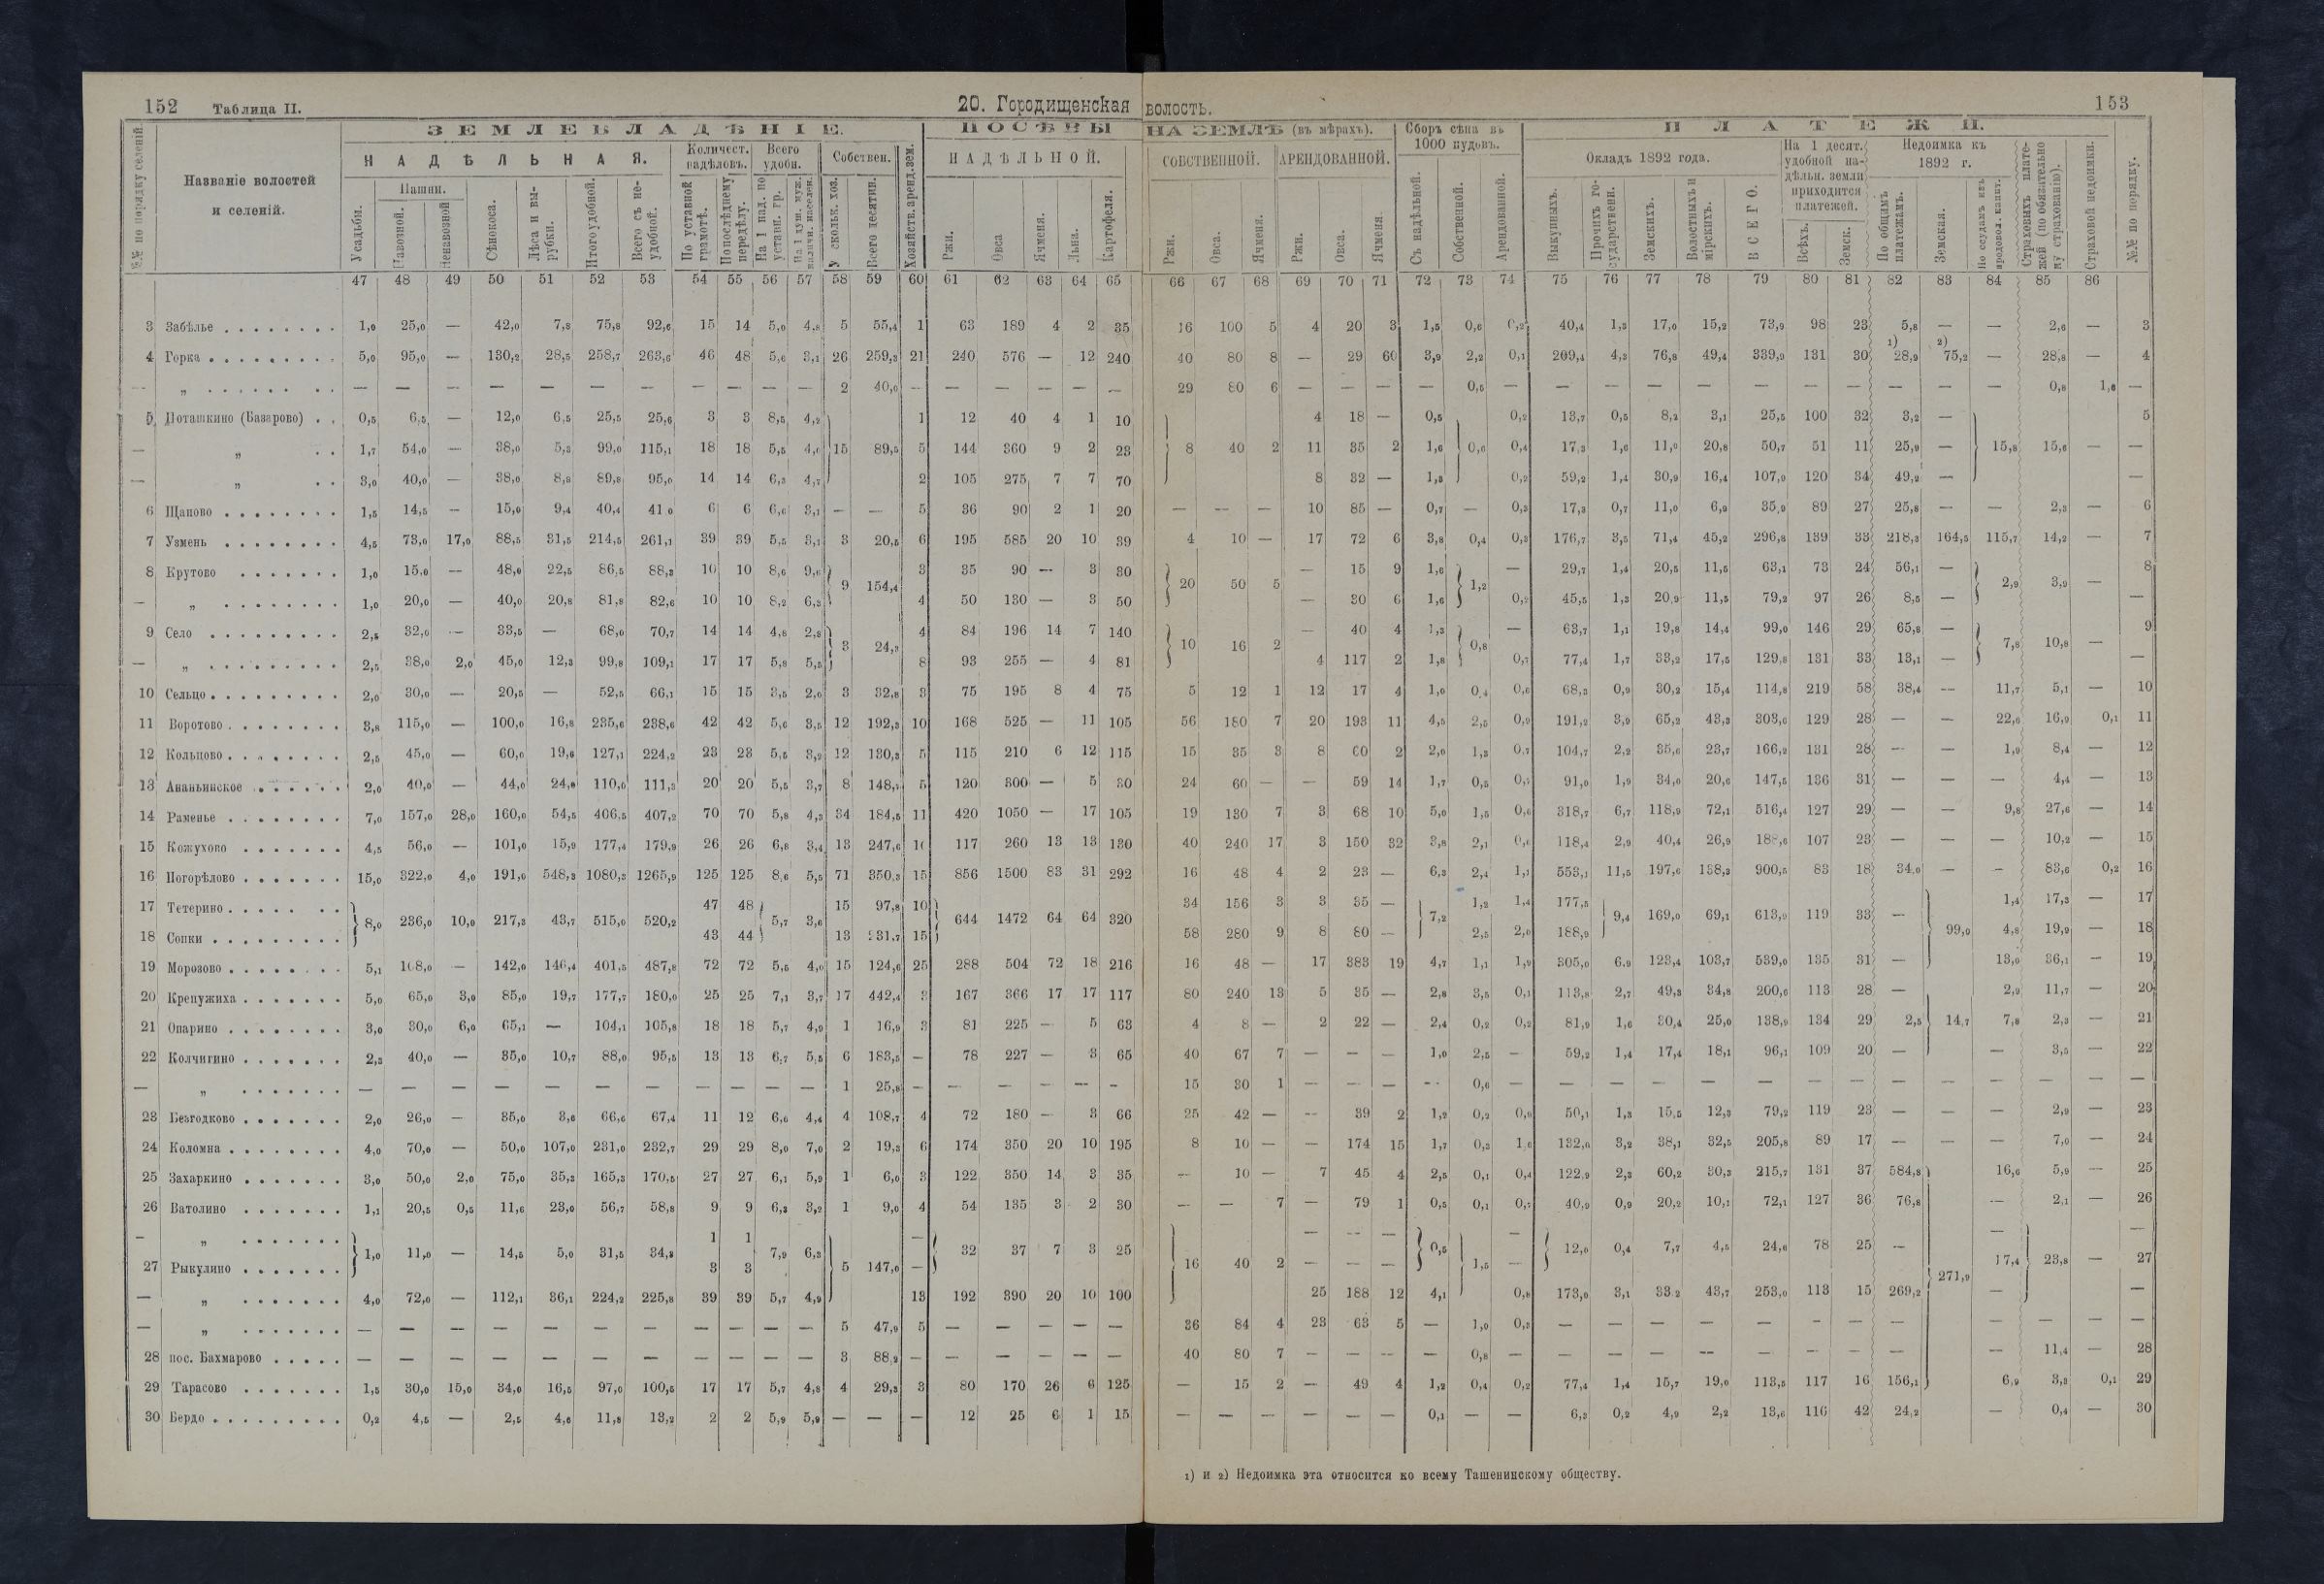 152 Таблица II. 20. Городищенская волость. 153
ЗЕМЛЕВЛАДѢНІЕ. ПОСѢВЫ НА ЗЕМЛѢ (въ мѣрахъ). Сборъ сѣна въ 1000 пудовъ. ПЛАТЕЖИ.
№№ по порядку селеній. Названіе волостей и селеній. НАДѢЛЬНАЯ. Количест. надѣловъ. Всего удобн. Собствен. Хозяйств. аренд. зем. НАДѢЛЬНОЙ. СОБСТВЕННОЙ. АРЕНДОВАННОЙ. Окладъ 1892 года. На 1 десят. удобной надѣльн. земли приходится платежей. Недоимка къ 1892 г. Страховыхъ платежей (по обязательному страхованію). Страховой недоимки. №№ по порядку.
Усадьбы. Пашни. Навозной. Ненавозной Сѣнокоса. Лѣса и вырубки. Итого удобной. Всего съ неудобной. По уставной грамотѣ. По послѣднему передѣлу. На 1 над. по уставн. гр. На 1 душ. муж. налич. населен. У скольк. хоз. Всего десятин. Ржи. Овса Ячменя. Льна. Картофеля. Ржи. Овса. Ячменя. Ржи. Овса. Ячменя. Съ надѣльной. Собственной. Арендованной. Выкупныхъ. Прочихъ государственн. Земскихъ. Волостныхъ и мірскихъ. ВСЕГО. Всѣхъ. Земск. По общимъ платежамъ. Земская. По ссудамъ изъ продовол. капит.
47 48 49 50 51 52 53 54 55 56 57 58 59 60 61 62 63 64 65 66 67 68 69 70 71 72 73 74 75 76 77 78 79 80 81 82 83 84 85 86
3 Забѣлье 1,0 25,0 — 42,0 7,8 75,8 92,6 15 14 5,0 4,8 5 55,4 1 63 189 4 2 35 16 100 5 4 20 3 1,5 0,6 0,2 40,4 1,3 17,0 15,2 73,9 98 23 5,8 — — 2,6 — 3
4 Горка 5,0 95,0 — 130,2 28,5 258,7 263,6 46 48 5,6 3,1 26 259,3 21 240 576 — 12 240 40 80 8 — 29 60 3,9 2,2 0,1 209,4 4,3 76,8 49,4 339,9 131 30 1) 28,9 2) 75,2 — 28,8 — 4
— „ — — — — — — — — — — — 2 40,0 — — — — — — 29 80 6 — — — — 0,5 — — — — — — — — — — — 0,8 1,6 —
5 Поташкино (Базарово) 0,5 6,5 — 12,0 6,5 25,5 25,6 3 3 8,5 4,2 1 12 40 4 1 10 4 18 — 0,5 0,2 13,7 0,5 8,2 3,1 25,5 100 32 3,2 — 5
— „ 1,7 54,0 — 38,0 5,3 99,0 115,1 18 18 5,5 4,6 15 89,5 5 144 360 9 2 23 8 40 2 11 35 2 1,6 0,6 0,4 17,3 1,6 11,0 20,8 50,7 51 11 25,9 — 15,8 15,6 — —
— „ 3,0 40,0 — 38,0 8,8 89,8 95,0 14 14 6,3 4,7 2 105 275 7 7 70 8 32 — 1,3 0,2 59,2 1,4 30,9 16,4 107,9 120 34 49,2 — —
6 Щапово 1,5 14,5 — 15,0 9,4 40,4 41,0 6 6 6,6 3,1 — — 5 36 90 2 1 20 — — — 10 85 — 0,7 — 0,3 17,3 0,7 11,0 6,9 35,9 89 27 25,8 — — 2,3 — 6
7 Узмень 4,5 73,0 17,0 88,5 31,5 214,5 261,1 39 39 5,5 3,1 3 20,5 6 195 585 20 10 39 4 10 — 17 72 6 3,8 0,4 0,3 176,7 3,5 71,4 45,2 296,8 139 33 218,3 164,5 115,7 14,2 — 7
8 Крутово 1,0 15,0 — 48,0 22,5 86,5 88,3 10 10 8,6 9,6 9 154,4 3 35 90 — 3 30 20 50 5 — 15 9 1,6 1,2 — 29,7 1,4 20,5 11,5 63,1 73 24 56,1 — 2,9 3,9 — 8
— „ 1,0 20,0 — 40,0 20,8 81,8 82,6 10 10 8,2 6,3 4 50 130 — 3 50 — 30 6 1,6 0,2 45,5 1,3 20,9 11,5 79,2 97 26 8,5 — —
9 Село 2,5 32,0 — 33,5 — 68,0 70,7 14 14 4,8 2,8 3 24,3 4 84 196 14 7 140 10 16 2 — 40 4 1,3 0,8 — 63,7 1,1 19,8 14,4 99,0 146 29 65,8 — 7,8 10,8 — 9
— „ 2,5 38,0 2,0 45,0 12,3 99,8 109,1 17 17 5,8 5,5 8 93 255 — 4 81 4 117 2 1,8 0,7 77,4 1,7 33,2 17,5 129,8 131 33 13,1 — —
10 Сельцо 2,0 30,0 — 20,5 — 52,5 66,1 15 15 3,5 2,6 3 32,8 3 75 195 8 4 75 5 12 1 12 17 4 1,0 0,4 0,6 68,3 0,9 30,2 15,4 114,8 219 58 38,4 — 11,7 5,1 — 10
11 Воротово 3,8 115,0 — 100,0 16,8 235,6 238,6 42 42 5,6 3,5 12 192,3 10 168 525 — 11 105 56 180 7 20 193 11 4,5 2,5 0,9 191,2 3,9 65,2 43,3 303,6 129 28 — — 22,6 16,9 0,1 11
12 Кольцово 2,5 45,0 — 60,0 19,6 127,1 224,2 23 23 5,5 3,2 12 130,3 5 115 210 6 12 115 15 35 3 8 60 2 2,0 1,3 0,7 104,7 2,2 35,6 23,7 166,2 131 28 — — 1,9 8,4 — 12
13 Ананьинское 2,0 40,0 — 44,0 24,0 110,0 111,3 20 20 5,5 3,7 8 148,1 5 120 300 — 5 30 24 60 — — 59 14 1,7 0,5 91,0 1,9 34,0 20,6 147,5 136 31 — — — 4,4 — 13
14 Раменье 7,0 157,0 28,0 160,0 54,5 406,5 407,2 70 70 5,8 4,3 34 184,5 11 420 1050 — 17 105 19 130 7 3 68 10 5,0 1,5 0,6 318,7 6,7 118,9 72,1 516,4 127 29 — — 9,8 27,6 — 14
15 Кожухово 4,5 56,0 — 101,0 15,9 177,4 179,9 26 26 6,8 3,4 13 247,6 10 117 260 13 13 130 40 240 17 3 150 32 3,8 2,1 118,4 2,9 40,4 26,9 188,6 107 23 — — — 10,2 — 15
16 Погорѣлово 15,0 322,0 4,0 191,0 548,3 1080,3 1265,9 125 125 8,6 5,5 71 350,3 15 856 1500 83 31 292 16 48 4 2 23 — 6,3 2,4 1,1 553,1 11,5 197,6 138,3 900,5 83 18 34,0 — — 83,6 0,2 16
17 Тетерино 8,0 236,0 10,0 217,3 43,7 515,0 520,2 47 48 5,7 3,6 15 97,8 10 644 1472 64 64 320 34 156 3 3 35 — 7,2 1,2 1,4 177,5 9,4 169,0 69,1 613,9 119 33 — 99,0 1,4 17,3 — 17
18 Сопки 43 44 13 231,7 15 58 280 9 8 80 — 2,5 2,0 188,9 4,8 19,9 — 18
19 Морозово 5,1 108,0 — 142,0 146,4 401,5 487,8 72 72 5,5 4,0 15 124,6 25 288 504 72 18 216 16 48 — 17 383 19 4,7 1,1 1,9 305,0 6,9 123,4 103,7 539,0 135 31 — 13,0 36,1 — 19
20 Крепужиха 5,0 65,0 3,0 85,0 19,7 177,7 180,0 25 25 7,1 3,7 17 442,4 3 167 366 17 17 117 80 240 13 5 35 — 2,8 3,5 0,1 113,8 2,7 49,3 34,8 200,6 113 28 — 2,9 11,7 — 20
21 Опарино 3,0 30,0 6,0 65,1 — 104,1 105,8 18 18 5,7 4,9 1 16,9 3 81 225 — 5 63 4 8 — 2 22 — 2,4 0,2 0,2 81,9 1,6 30,4 25,0 138,9 134 29 2,5 14,7 7,8 2,3 — 21
22 Колчигино 2,3 40,0 — 35,0 10,7 88,0 95,5 13 13 6,7 5,5 6 183,5 — 78 227 — 3 65 40 67 7 — — — 1,0 2,5 — 59,2 1,4 17,4 18,1 96,1 109 20 — — 3,5 — 22
— „ — — — — — — — — — — — 1 25,8 — — — — — — 15 30 1 — — — — 0,6 — — — — — — — — — — — — — —
23 Безгодково 2,0 26,0 — 35,0 3,6 66,6 67,4 11 12 6,0 4,4 4 108,7 4 72 180 — 3 66 25 42 — — 39 2 1,2 0,2 0,9 50,1 1,3 15,5 12,3 79,2 119 23 — — — 2,9 — 23
24 Коломна 4,0 70,0 — 50,0 107,0 231,0 232,7 29 29 8,0 7,0 2 19,3 6 174 350 20 10 195 8 10 — — 174 15 1,7 0,3 1,6 132,0 3,2 38,1 32,5 205,8 89 17 — — — 7,0 — 24
25 Захаркино 3,0 50,0 2,0 75,0 35,3 165,3 170,5 27 27 6,1 5,9 1 6,0 3 122 350 14 3 35 — 10 — 7 45 4 2,5 0,1 0,4 122,9 2,3 60,2 30,3 215,7 131 37 584,8 16,6 5,9 — 25
26 Ватолино 1,1 20,5 0,5 11,6 23,0 56,7 58,8 9 9 6,3 3,2 1 9,0 4 54 135 3 2 30 — — 7 — 79 1 0,5 0,1 40,9 0,9 20,2 10,1 72,1 127 36 76,8 — 2,1 — 26
— „ 1,0 11,0 — 14,5 5,0 31,5 34,8 1 1 7,9 6,3 — 32 37 7 3 25 — — — 0,5 — 12,0 0,4 7,7 4,5 24,6 78 25 — — —
27 Рыкулино 3 3 5 147,0 — 16 40 2 — — — 1,5 — 271,9 17,4 23,8 — 27
— „ 4,0 72,0 — 112,1 36,1 224,2 225,8 39 39 5,7 4,9 13 192 390 20 10 100 25 188 12 4,1 0,8 173,0 3,1 33,2 43,7 253,0 113 15 269,2 — —
— „ — — — — — — — — — — — 5 47,9 5 — — — — — 36 84 4 23 63 5 — 1,0 0,3 — — — — — — — — — — — —
28 пос. Бахмарово — — — — — — — — — — — 3 88,2 — — — — — — 40 80 7 — — — — 0,8 — — — — — — — — — — 11,4 — 28
29 Тарасово 1,5 30,0 15,0 34,0 16,5 97,0 100,5 17 17 5,7 4,8 4 29,3 3 80 170 26 6 125 — 15 2 — 49 4 1,2 0,4 0,2 77,4 1,4 15,7 19,0 113,5 117 16 156,1 6,9 3,3 0,1 29
30 Бердо 0,2 4,5 — 2,5 4,6 11,8 13,2 2 2 5,9 5,9 — — — 12 25 6 1 15 — — — — — — 0,1 — — 6,3 0,2 4,9 2,2 13,6 116 42 24,2 — 0,4 — 30
1) и 2) Недоимка эта относится ко всему Ташенинскому обществу.